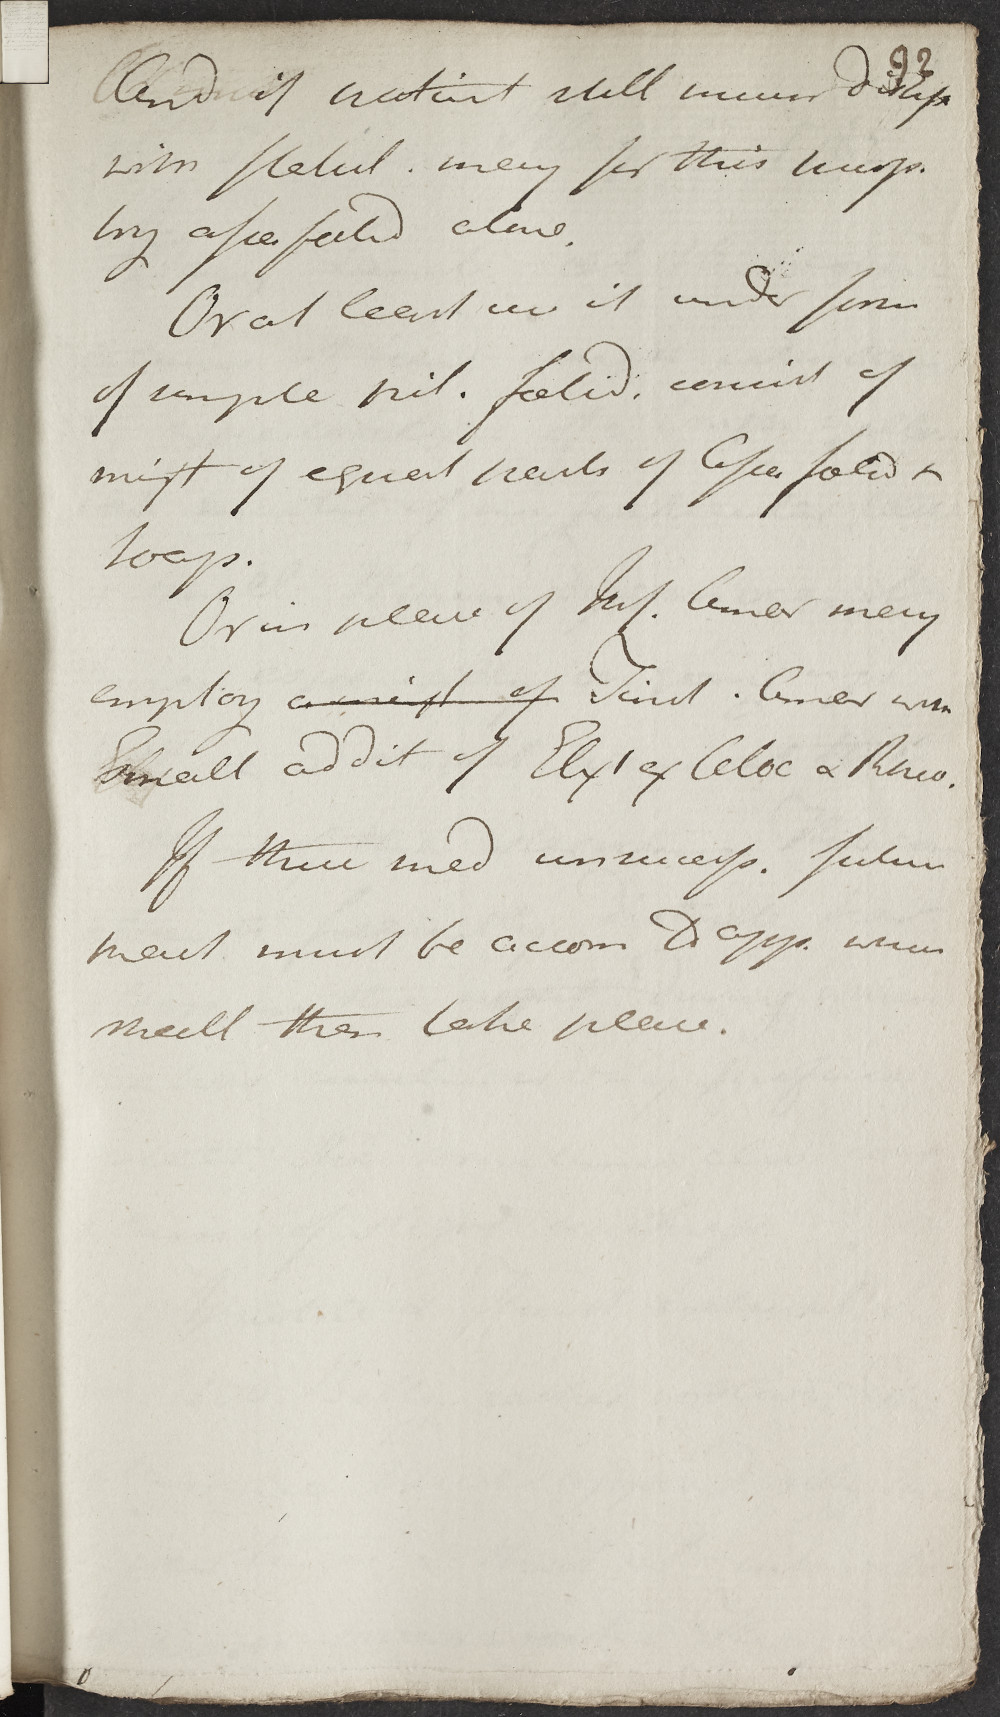 92
And if patient still much distress
with flatul. may for this purp.
try assa foetid alone.
Or at least use it under form
of simple pil. foetid. consist of
mixt of equal parts of Assa foetid &
soap.
Or in place of Inf. Amar may
employ a mixt of Tinct. Amar with
small addit of Elix ex Aloe & Rheo.
If these med unsuccess. future
treat must be accom to app. which
shall then take place.